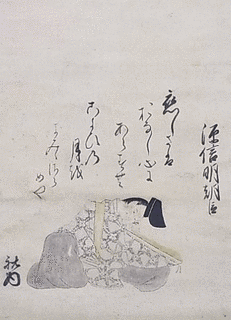 源信明朝臣
恋しさは
おなし心に
あらすとも
こよひの
月を
きみみさら
めや